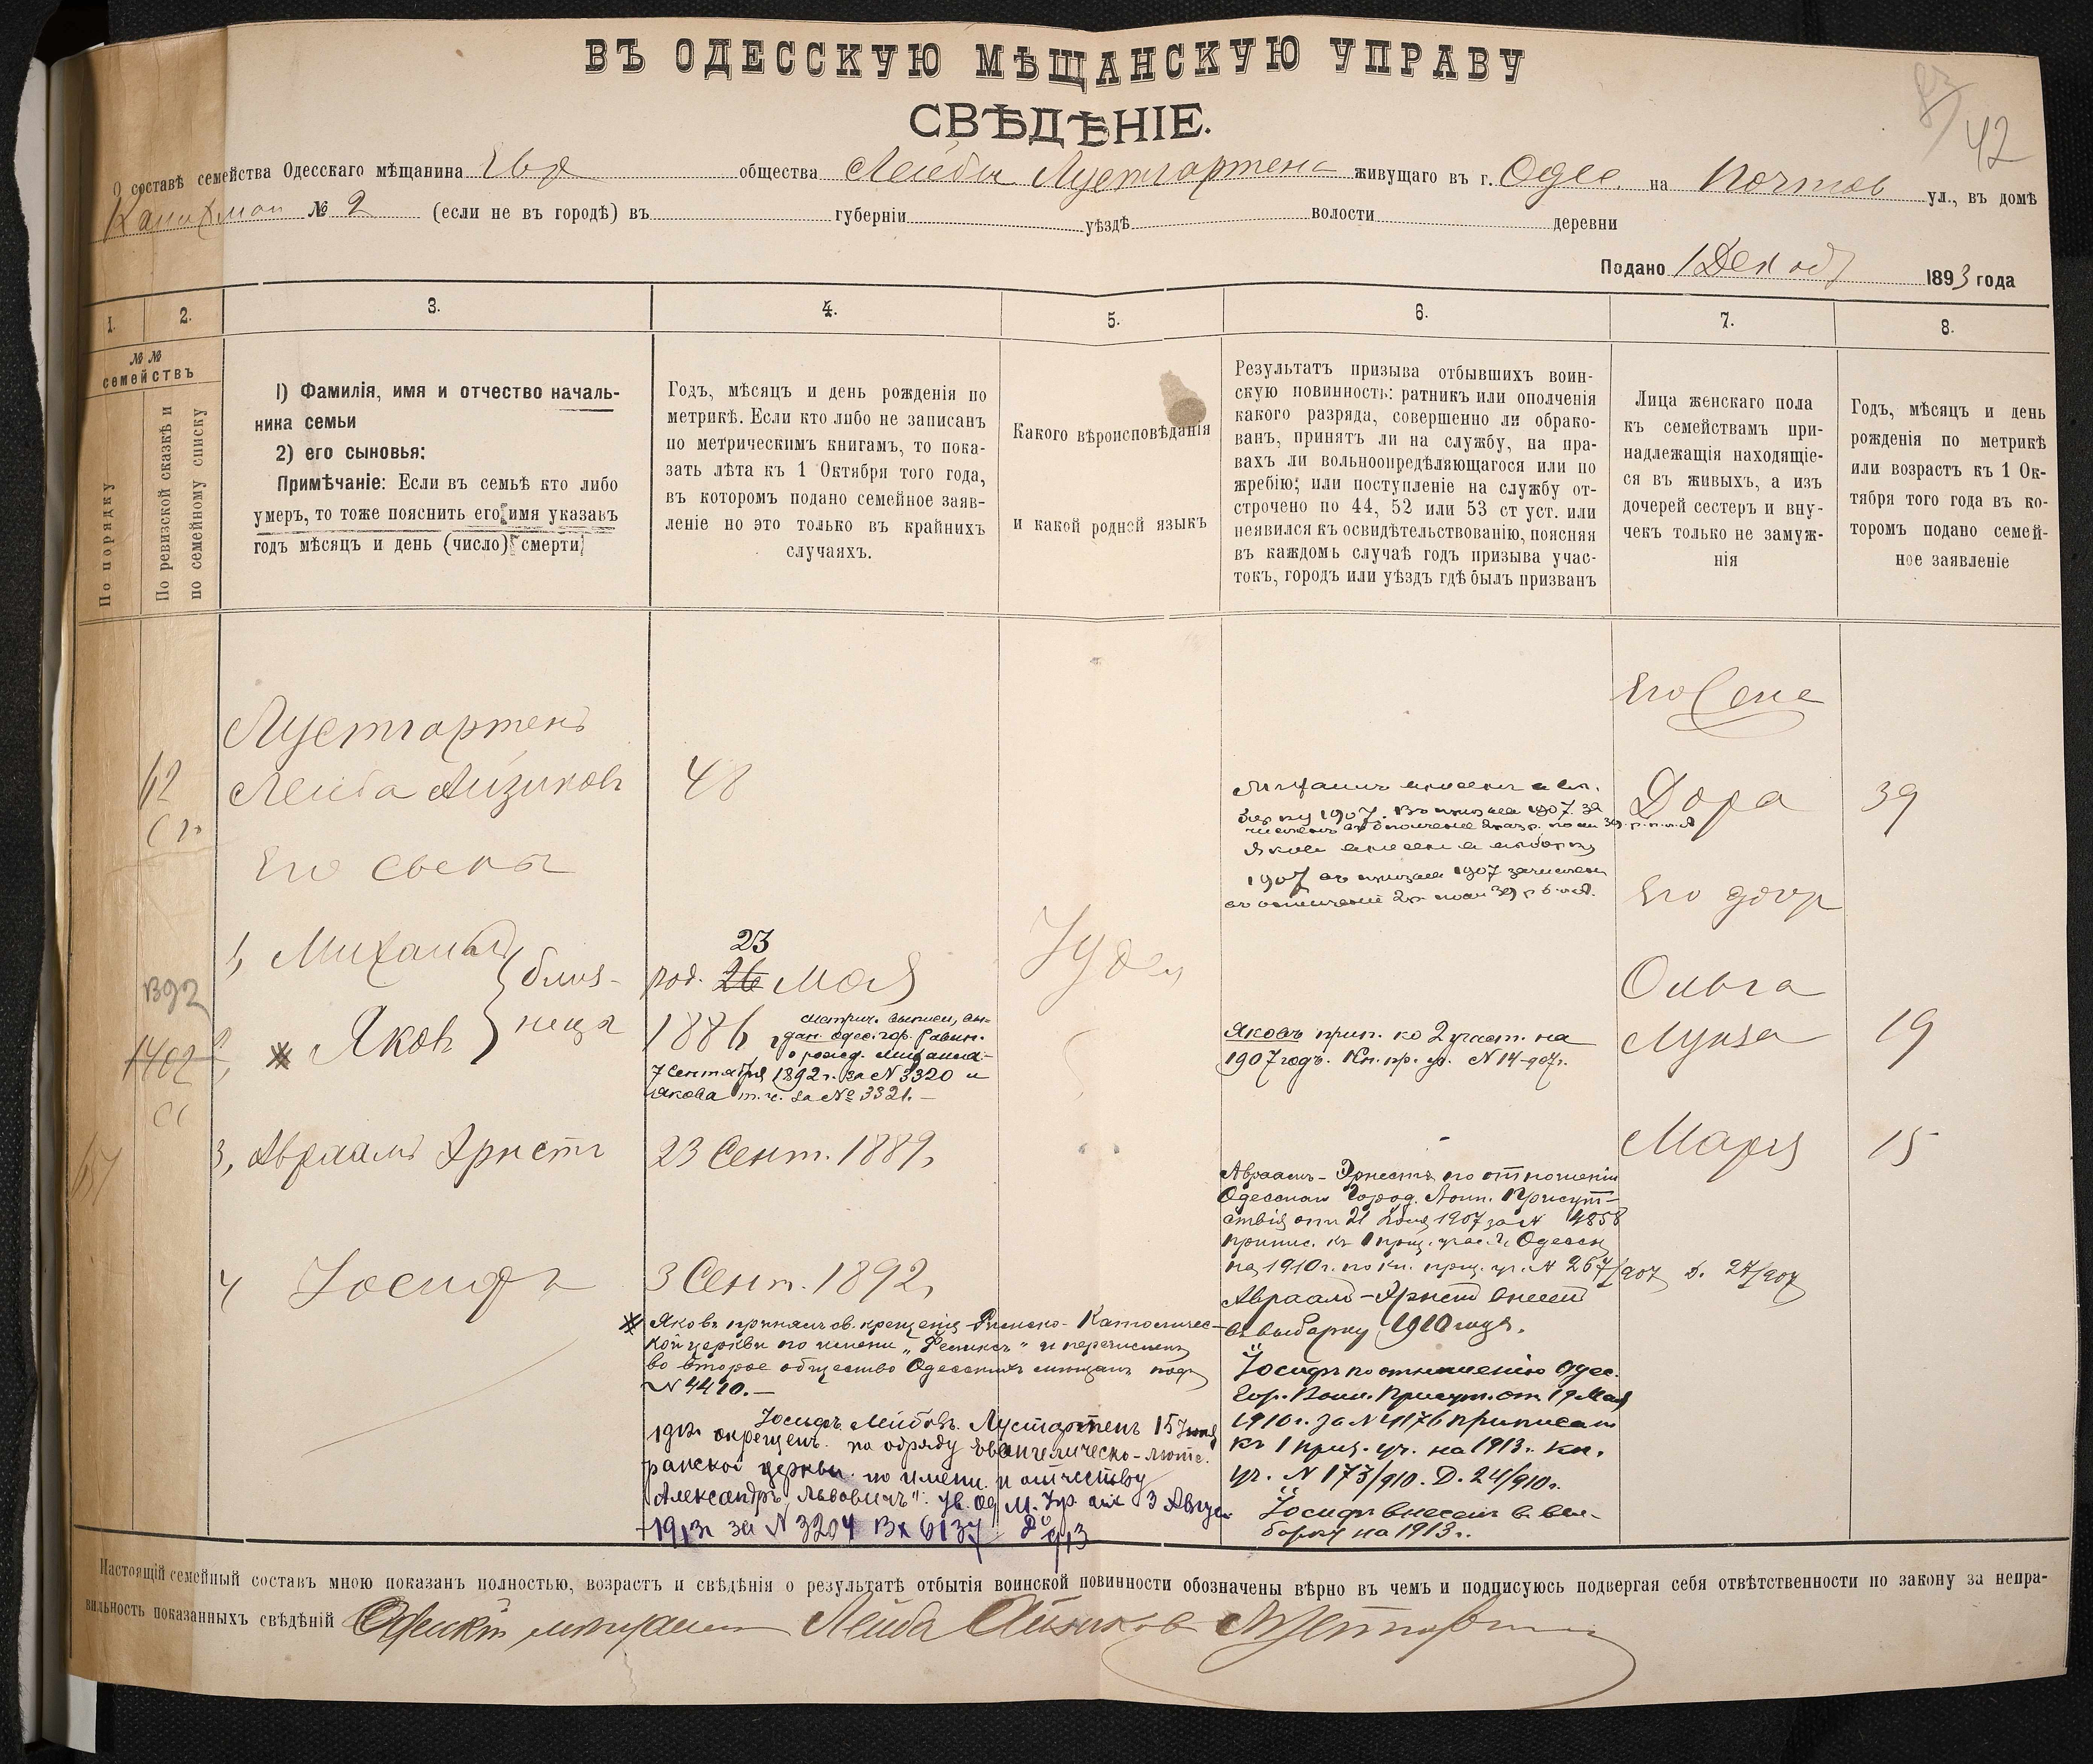 ВЪ ОДЕССКУЮ МѢЩАНСКУЮ УПРАВУ
СВѢДѢНІЕ.
42
О составѣ семейства Одесскаго мѣщанина Евр общества Лейбы Лустгартена живущаго въ г. Одес. на Почтов ул., въ домѣ
№ 2 (если не въ городѣ) въ губерніи уѣздѣ волости деревни
Подано 1 Декаб 1893 года
1. 2. 3. 4. 5. 6. 7. 8.
№№ семействъ
По порядку
По ревизской сказкѣ и
по семейному списку
1) Фамилія, имя и отчество началь-
ника семьи
2) его сыновья:
Примѣчаніе: Если въ семьѣ кто либо
умеръ, то тоже пояснить его имя указавъ
годъ мѣсяцъ и день (число) смерти
Годъ, мѣсяцъ и день рожденія по
метрикѣ. Если кто либо не записанъ
по метрическимъ книгамъ, то пока-
зать лѣта къ 1 Октября того года,
въ которомъ подано семейное заяв-
леніе но это только въ крайнихъ
случаяхъ.
Какого вѣроисповѣданія
и какой родной языкъ
Результатъ призыва отбывшихъ воин-
скую повинность: ратникъ или ополченія
какого разряда, совершенно ли обрако-
ванъ, принятъ ли на службу, на пра-
вахъ ли вольноопредѣляющагося или по
жребію; или поступленіе на службу от-
строчено по 44, 52 или 53 ст уст. или
неявился къ освидѣтельствованію, поясняя
въ каждомъ случаѣ годъ призыва учас-
токъ, городъ или уѣздъ гдѣ былъ призванъ
Лица женскаго пола
къ семействамъ при-
надлежащія находящіе-
ся въ живыхъ, а изъ
дочерей сестеръ и вну-
чекъ только не замуж-
нія
Годъ, мѣсяцъ и день
рожденія по метрикѣ
или возрастъ къ 1 Ок-
тября того года въ ко-
торомъ подано семей-
ное заявленіе
Лустгартенъ
62 Лейба Айзиковъ 48
Его сыны
1, Михаилъ
близ-
неца
Яковъ
23
род. 26 Мая
1886
метрич. выписи, вы-
дан. одес. гор. Равин.
о рожд. Михаила-
7 Сентября 1892 г. за № 3320 и
Якова т. ч. за № 3321.-
1392
1402
3, Авраамъ Эрнстъ 23 Сент. 1889,
4 Іосифъ 3 Сент. 1892,
Іудей
Его Жена
Дора 39
Его дочр
Ольга
Луиза 19
Марія 15
Михаилъ внесенъ в вы-
борку 1907. Въ призывъ 1907 за
Яковъ внесенъ в выборку
1907 въ призывъ 1907 зачислен
въ ополченіе 2р.
Яковъ прип. ко 2 участ. на
1907 годъ. Кн. пр. уч. № 14-907г.
Авраамъ-Эрнестъ по отношенію
Одесскаго Город. Воин. Присут-
ствія отъ 21 Іюня 1907 за № 4858
припис. къ 1 приз. учас. г. Одессы
на 1910 г. по кн. приз. уч. № 267/907 Д. 27/907
Авраамъ-Эрнстъ внесенъ
въ выборку 1910 года.
Іосифъ по отношенію Одес.
Гор. Воин. Присут. отъ 19 Мая
1910 г. за № 4176 приписанъ
къ 1 приз. уч. на 1913 г. Кн.
уч. № 173/910. Д. 24/910г.
Іосифъ внесенъ в вы-
борку на 1913 г.
Яковъ принялъ св. крещеніе Римско-Католичес-
кой церкви по имени „Феликсъ" и перечисленъ
во второе общество Одесскихъ мѣщанъ подъ
№ 4410.-
Іосифъ Лейбовъ Лустгартенъ 15 Іюня
1912г окрещенъ по обряду Евангелическо-люте-
ранской церкви по имени и отчеству
„Александръ Львовичъ". Ув. Од. М. Упр. отъ 3 Август
1913г за № 3204 Вх 6137
Настоящій семейный составъ мною показанъ полностью, возрастъ и свѣдѣнія о результатѣ отбытія воинской повинности обозначены вѣрно въ чемъ и подписуюсь подвергая себя отвѣтственности по закону за непра-
вильность показанныхъ свѣдѣній Одескій мѣщанинъ Лейба Айзиковъ Лустгартенъ